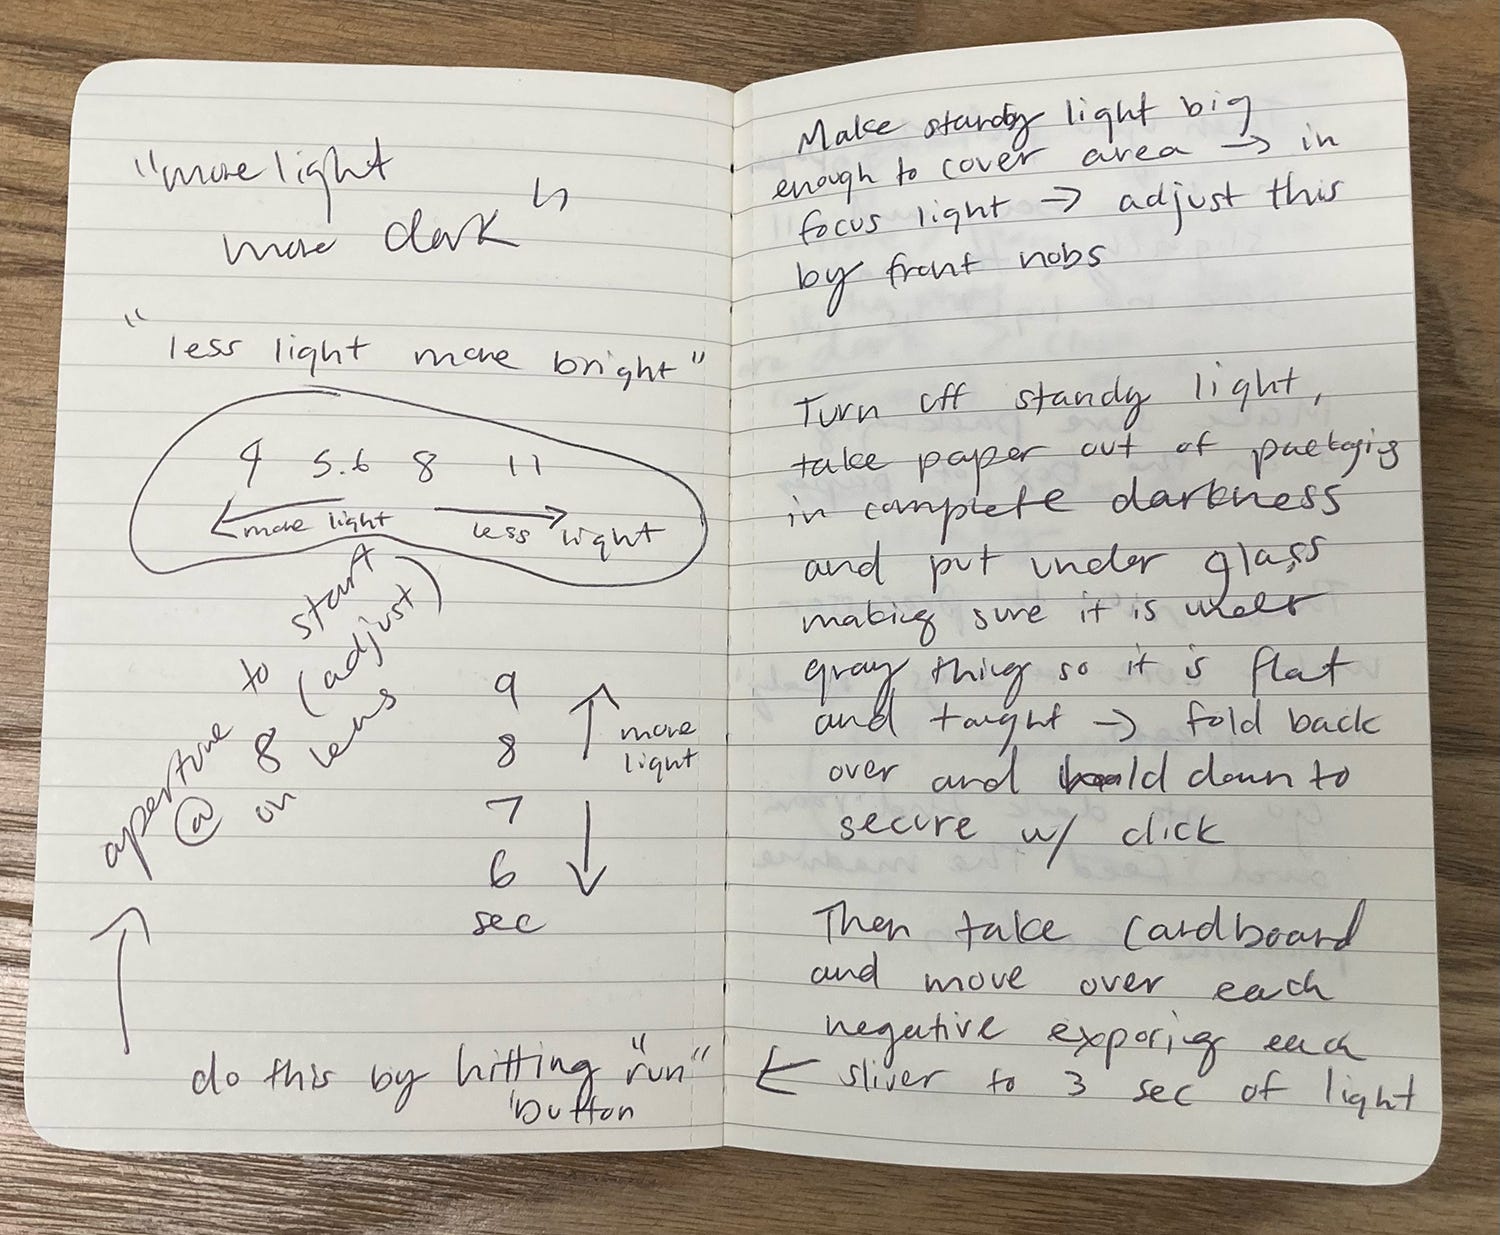 "more light
more dark"
"less light more bright"
4 5.6 8 11
more light less light
aperture to start
@ 8 (adjust)
on lens
9
8
7
6
sec
more
light
do this by hitting "run"
button
Make standby light big
enough to cover area → in
focus light → adjust this
by front nobs
Turn off standy light,
take paper out of
in complete darkness
and put under glass
making sure it is under
gray thing so it is flat
and taught → fold back
over and hold down to
secure w/ click
Then take cardboard
and move over each
negative exposing each
← sliver to 3 sec of light